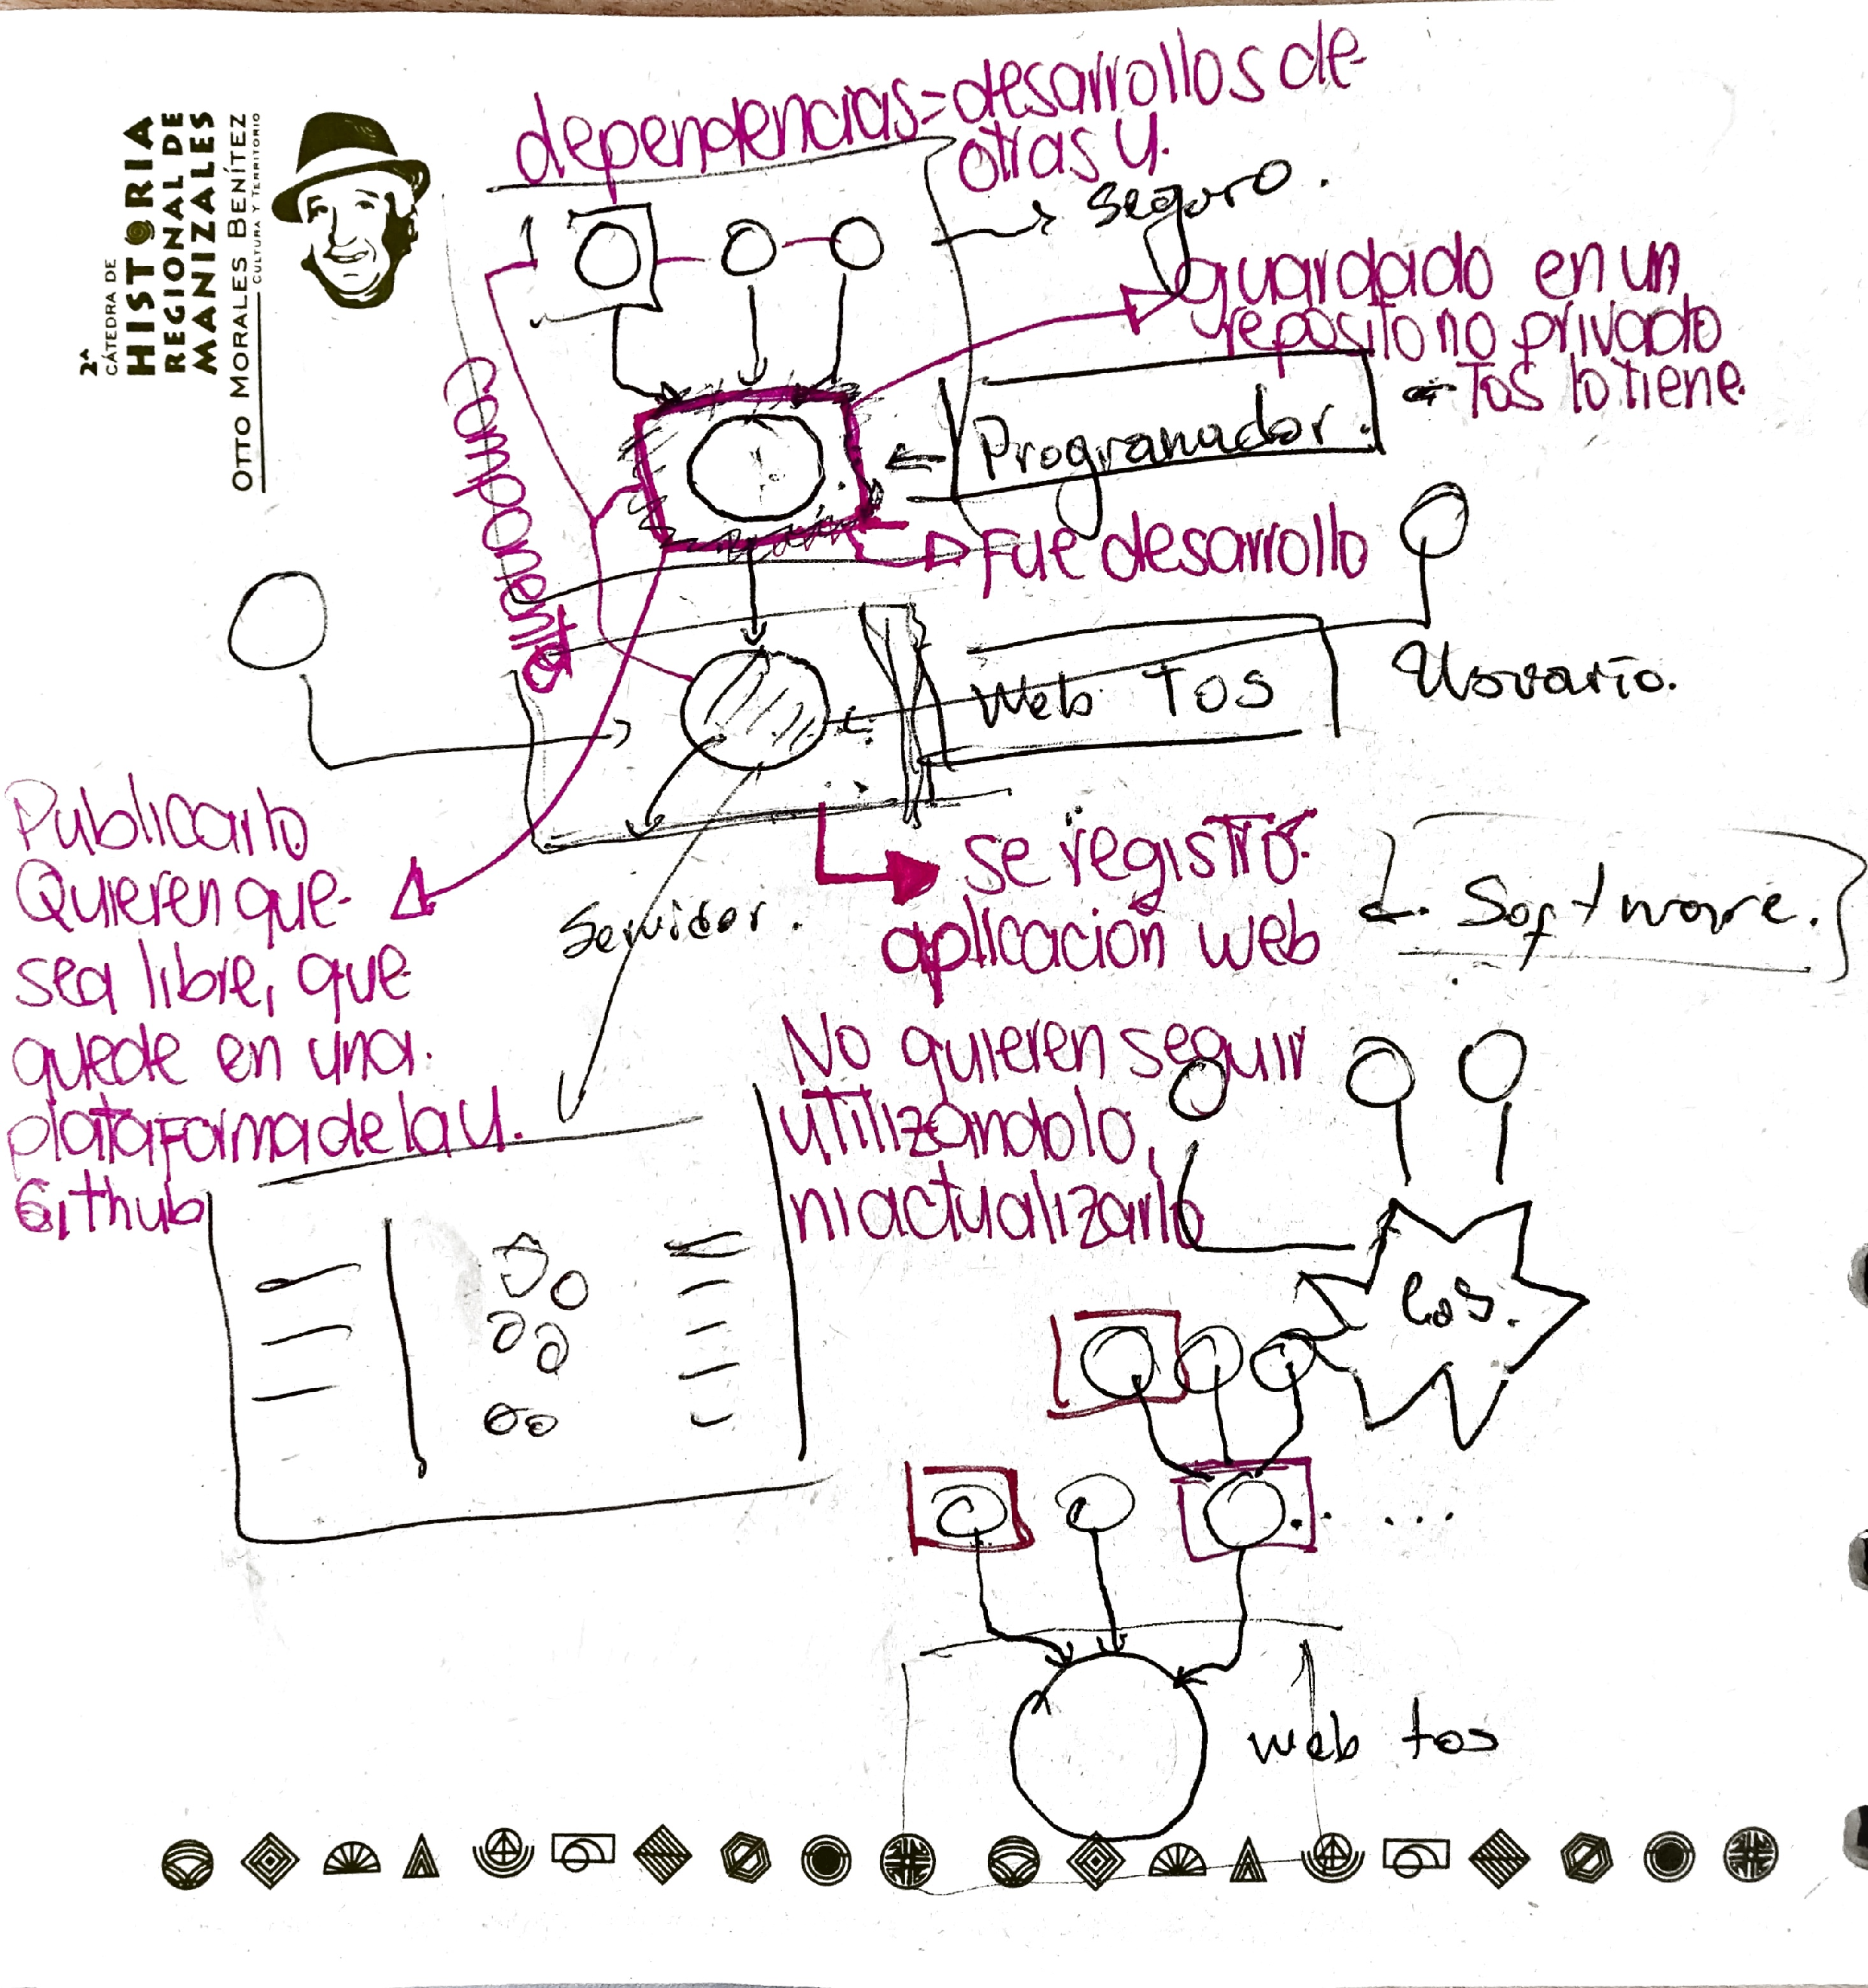 2ª
CÁTEDRA DE
HISTORIA
REGIONAL DE
MANIZALES
OTTO MORALES BENÍTEZ
CULTURA Y TERRITORIO
dependencias = desarrollos de
otras U.
→ Seguro.
guardado en un
reposito no privado
Tos lo tiene.
Programador.
componente
Fue desarrollo
Web TOS
Usuario.
Publicarlo
Quieren que
sea libre, que
quede en una
plataforma de la U.
Github
Servidor.
se registró
aplicación web
Software.
No quieren seguir
utilizándolo,
ni actualizarlo
...
web tos